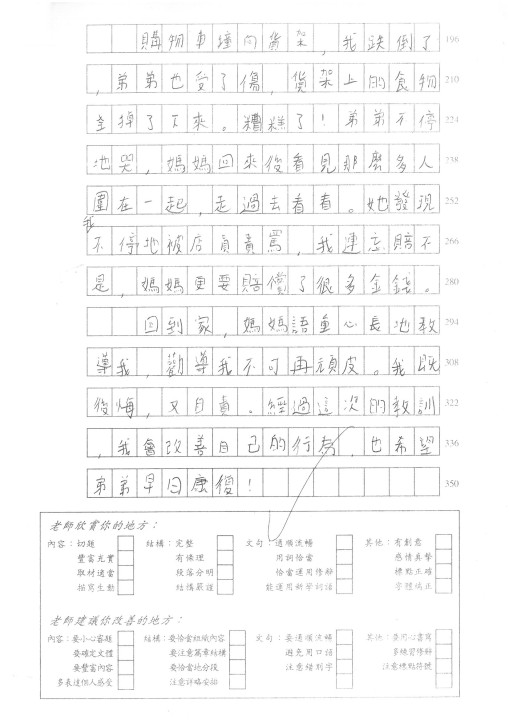 購物車撞向貨架，我跌倒了 196
，弟弟也受了傷，貨架上的食物 210
全掉了下來。糟糕了！弟弟不停 224
地哭，媽媽回來後看見那麼多人 238
圍在一起，走過去看看。她發現 252
我
不停地被店員責罵，我連忘賠不 266
是，媽媽更要賠償了很多金錢。 280
回到家，媽媽語重心長地教 294
導我，勸導我不可再頑皮。我既 308
後悔，又自責。經過這次的教訓 322
，我會改善自己的行為，也希望 336
弟弟早日康復！ 350
老師欣賞你的地方：
內容：切題 結構：完整 文句：通順流暢 其他：有創意
豐富充實 有條理 用詞恰當 感情真摯
取材適當 段落分明 恰當運用修辭 標點正確
描寫生動 結構嚴謹 能運用新學詞語 字體端正
老師建議你改善的地方：
內容：要小心審題 結構：要恰當組織內容 文句：要通順流暢 其他：要用心書寫
要確定文體 要注意篇章結構 避免用口語 多練習修辭
要豐富內容 要恰當地分段 注意錯別字 注意標點符號
多表達個人感受 注意詳略安排